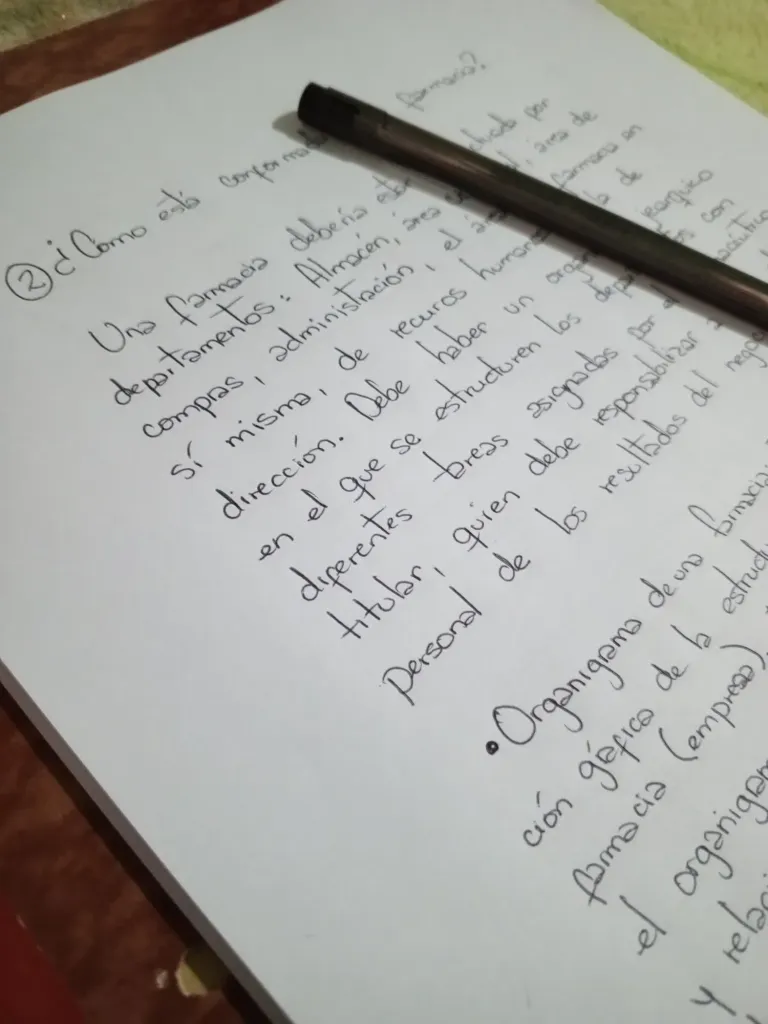 ② ¿Cómo está conformad farmacia?
Una farmacia debería est por
departamentos: Almacén, área área de
compras, administración, el áre farmacia en
sí misma, de recuros humano la de
dirección. Debe haber un organi
en el que se estructuren los depa con
diferentes áreas asignadas por el
titular, quien debe responsabilizar a
personal de los resultados del nego
• Organigrama de una farmacia:
ción gráfica de la estructu
farmacia (empresa),
el organigram
y relaci